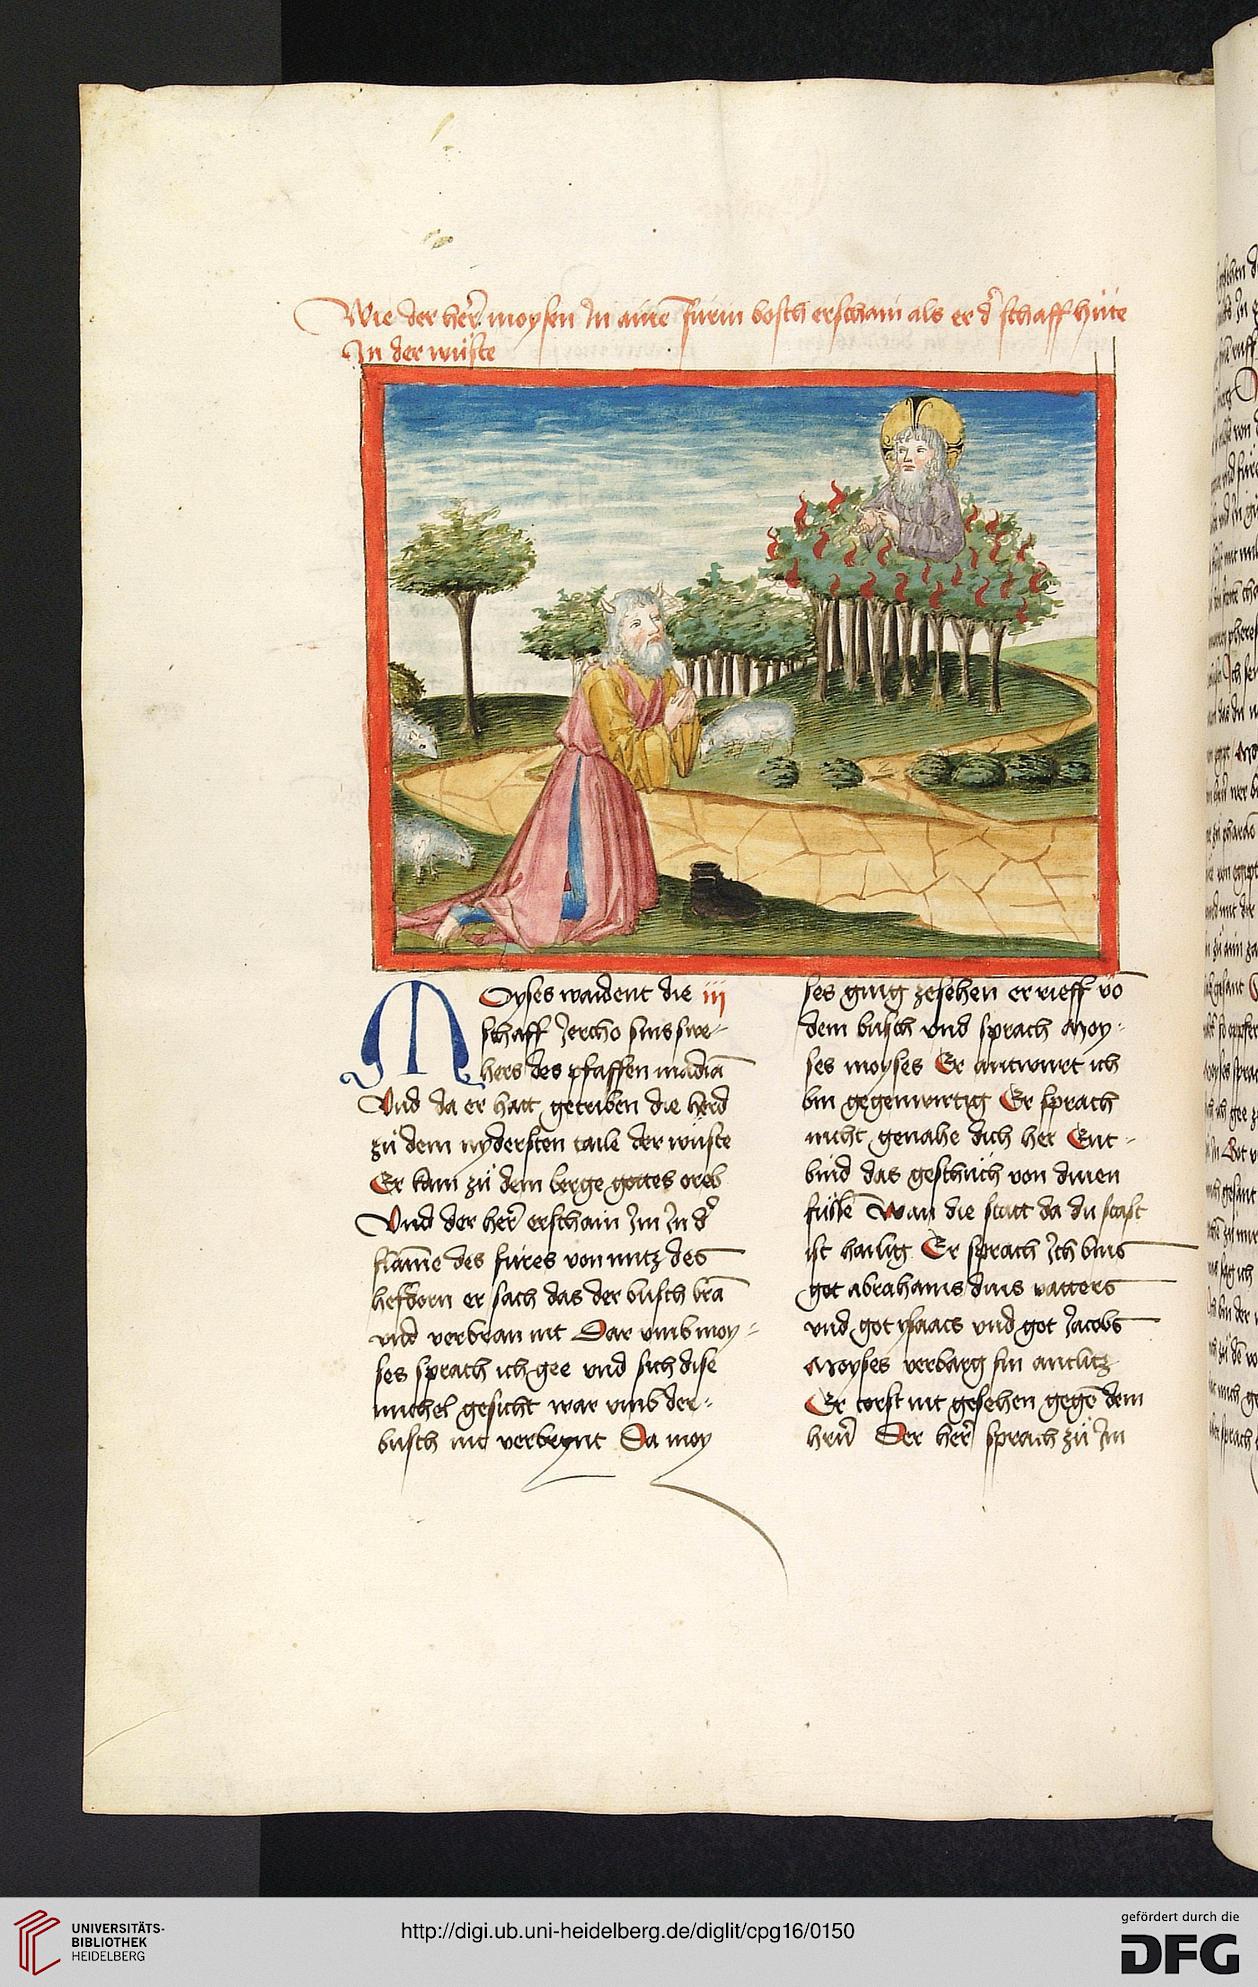 Wie der her̄ moysen In aine᷑ fúrin bosch erschain als er d᷑ schaff húte
In der wúste
MOyses waident die iii
schaff Jercho sins swe-
hers des pfaffen madiā
Vnd da er hatt getriben die herd
zů dem nydersten taile der wúste
Er kam zů dem berge gottes oreb
Vnd der her̄ erschain Im In d᷑
flam̄e des fúres von mitz des
er sach das der busch brā
vnd verbran nit Dar vmb moy-
ses sprach ich gee vnd sich dise
michel gesicht war vmb der-
busch nit verbrynt Da moy
ses ging zesehen er rieff vō
dem busch vnd sprach Moy-
ses moyses Er antwurt ich
bin gegenwirtig Er sprach
nicht genahe dich her Ent-
bind das geschúch von dinen
fússē Wan die statt da du stast
ist hailig Er sprach Ich bins
got abrahams dins vatters
vnd got ysaacs vnd got Jacobs
Moyses verbarg sin antlitz
Er torst nit gesehen gegē dem
hrn̄ Der her̄ sprach zů Im
UNIVERSITÄTS-
BIBLIOTHEK
HEIDELBERG
http://digi.ub.uni-heidelberg.de/diglit/cpg16/0150
gefördert durch die
DFG